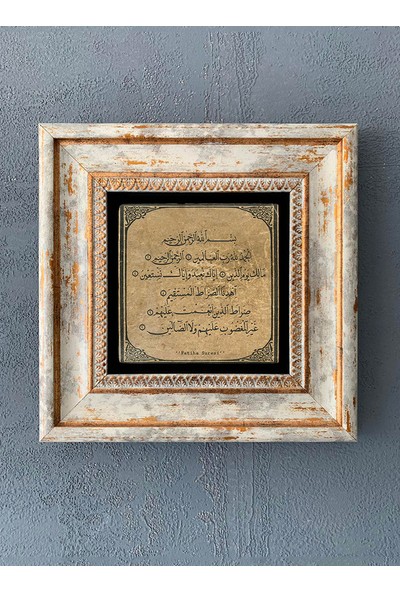 بسم الله الرحمن الرحيم
الحمد لله رب العالمين ۝ الرحمن الرحيم ۝
مالك يوم الدين ۝ إياك نعبد وإياك نستعين ۝
اهدنا الصراط المستقيم ۝
صراط الذين أنعمت عليهم
غير المغضوب عليهم ولا الضالين ۝
''Fatiha Suresi''